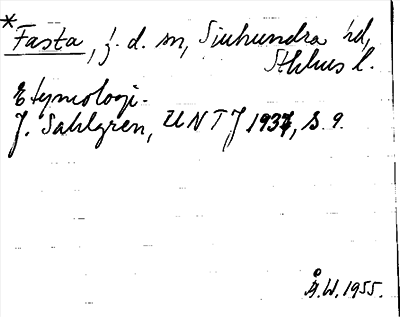 *Fasta, f. d. sn, Siuhundra hd,
Sthlms l.
Etymologi.
J. Sahlgren, UNTJ 1937, S. 9.
Å.W. 1955.